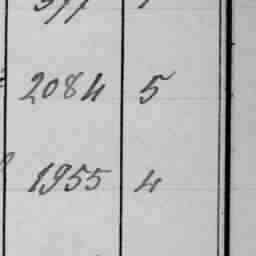 2084 5
1955 4